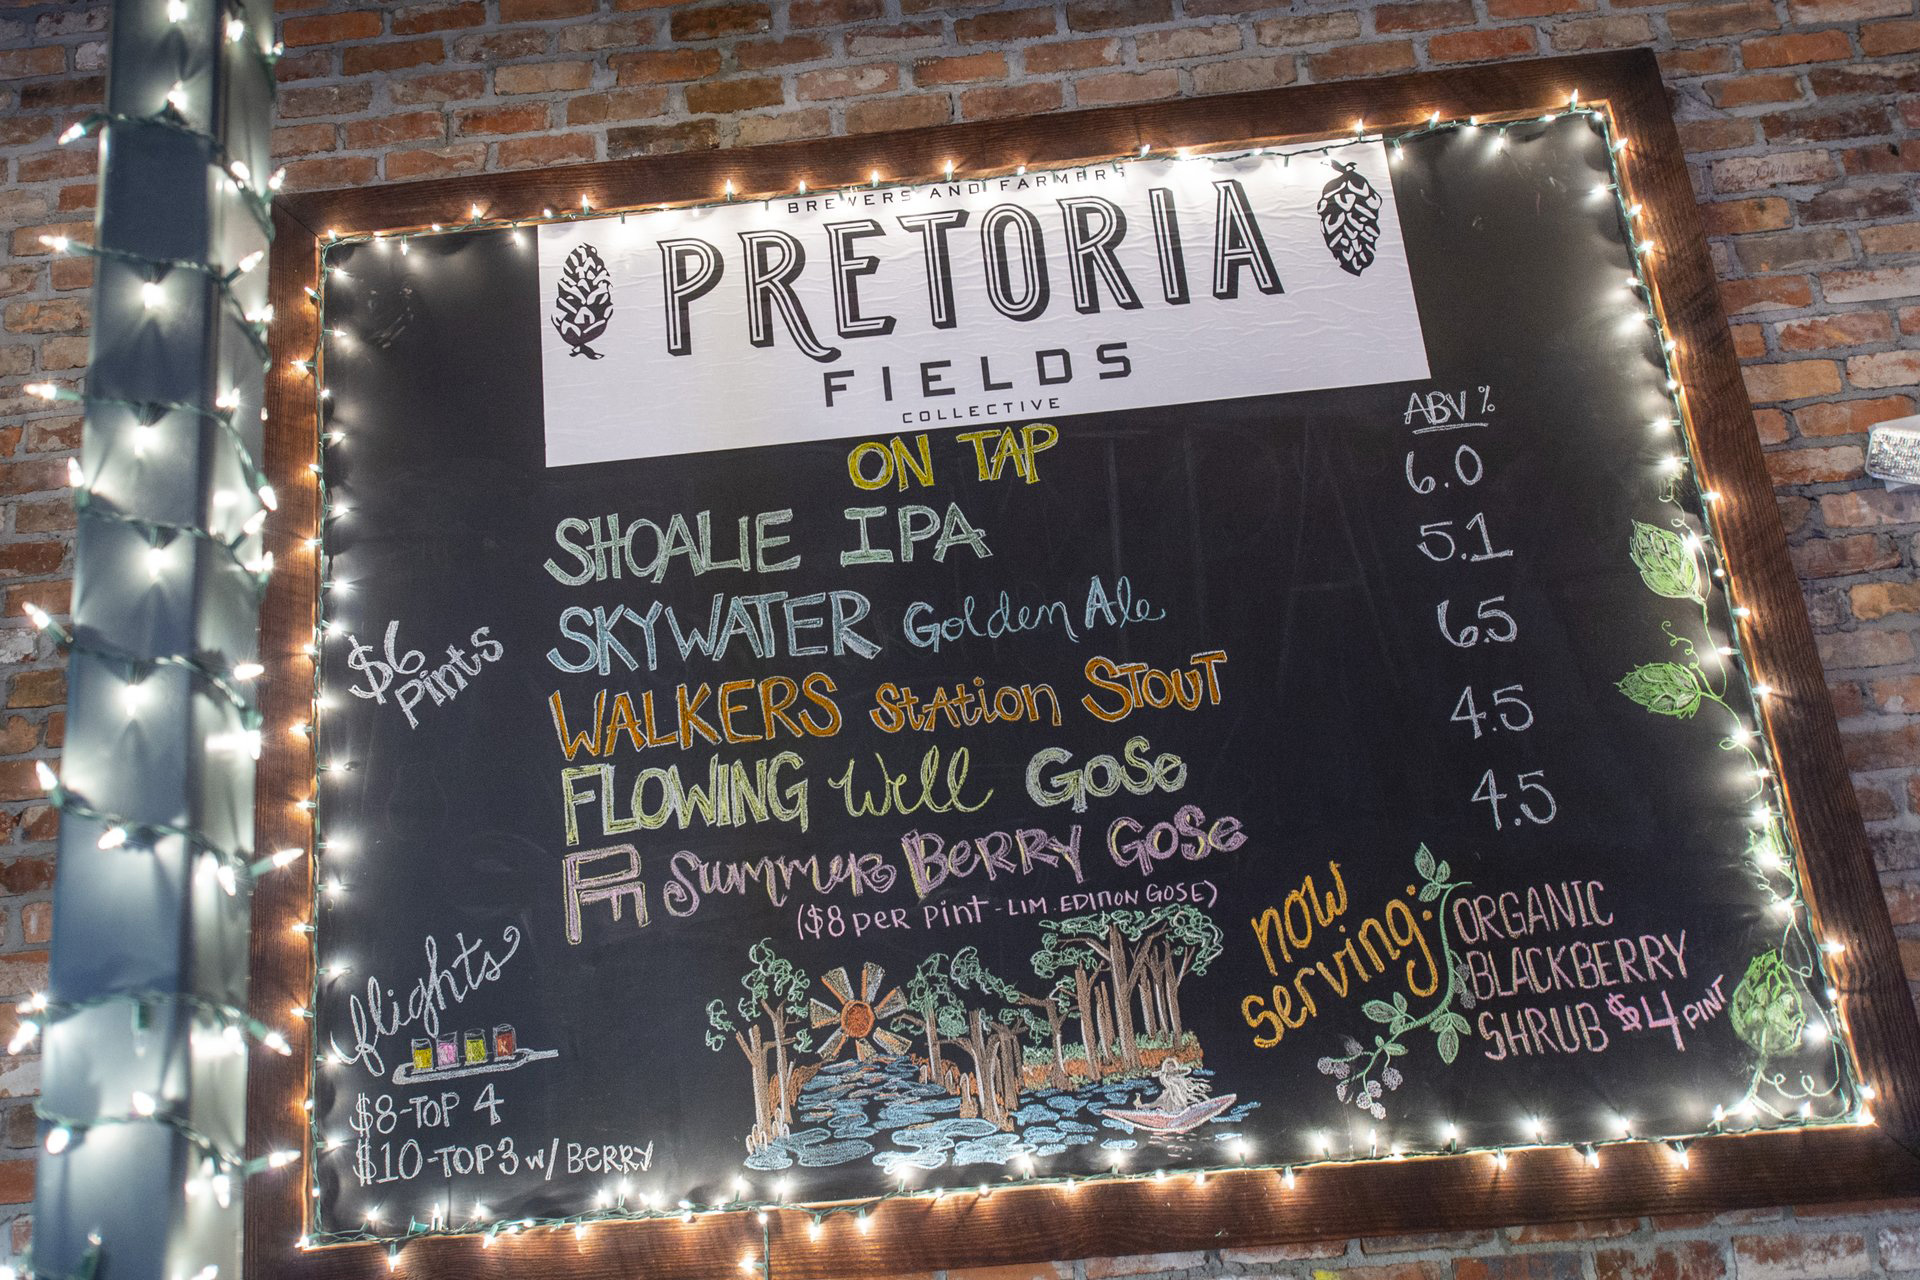 BREWERS AND FARMERS
PRETORIA
FIELDS
COLLECTIVE
ON TAP
ABV %
SHOALIE IPA 6.0
SKYWATER Golden Ale 5.1
WALKERS Station STOUT 6.5
FLOWING Well Gose 4.5
PF Summer Berry Gose 4.5
($8 per pint - LIM. EDITION GOSE)
$6
Pints
flights
$8-TOP 4
$10-TOP 3 w/ BERRY
now
serving:
ORGANIC
BLACKBERRY
SHRUB $4 PINT